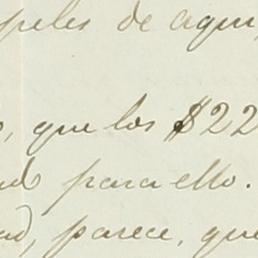 peles de aqui,
, que los $22
para ello.
ad, parece, que